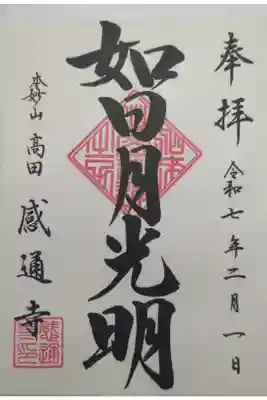 奉拝
令和七年二月一日
如日月光明
本妙山
高田
感通寺